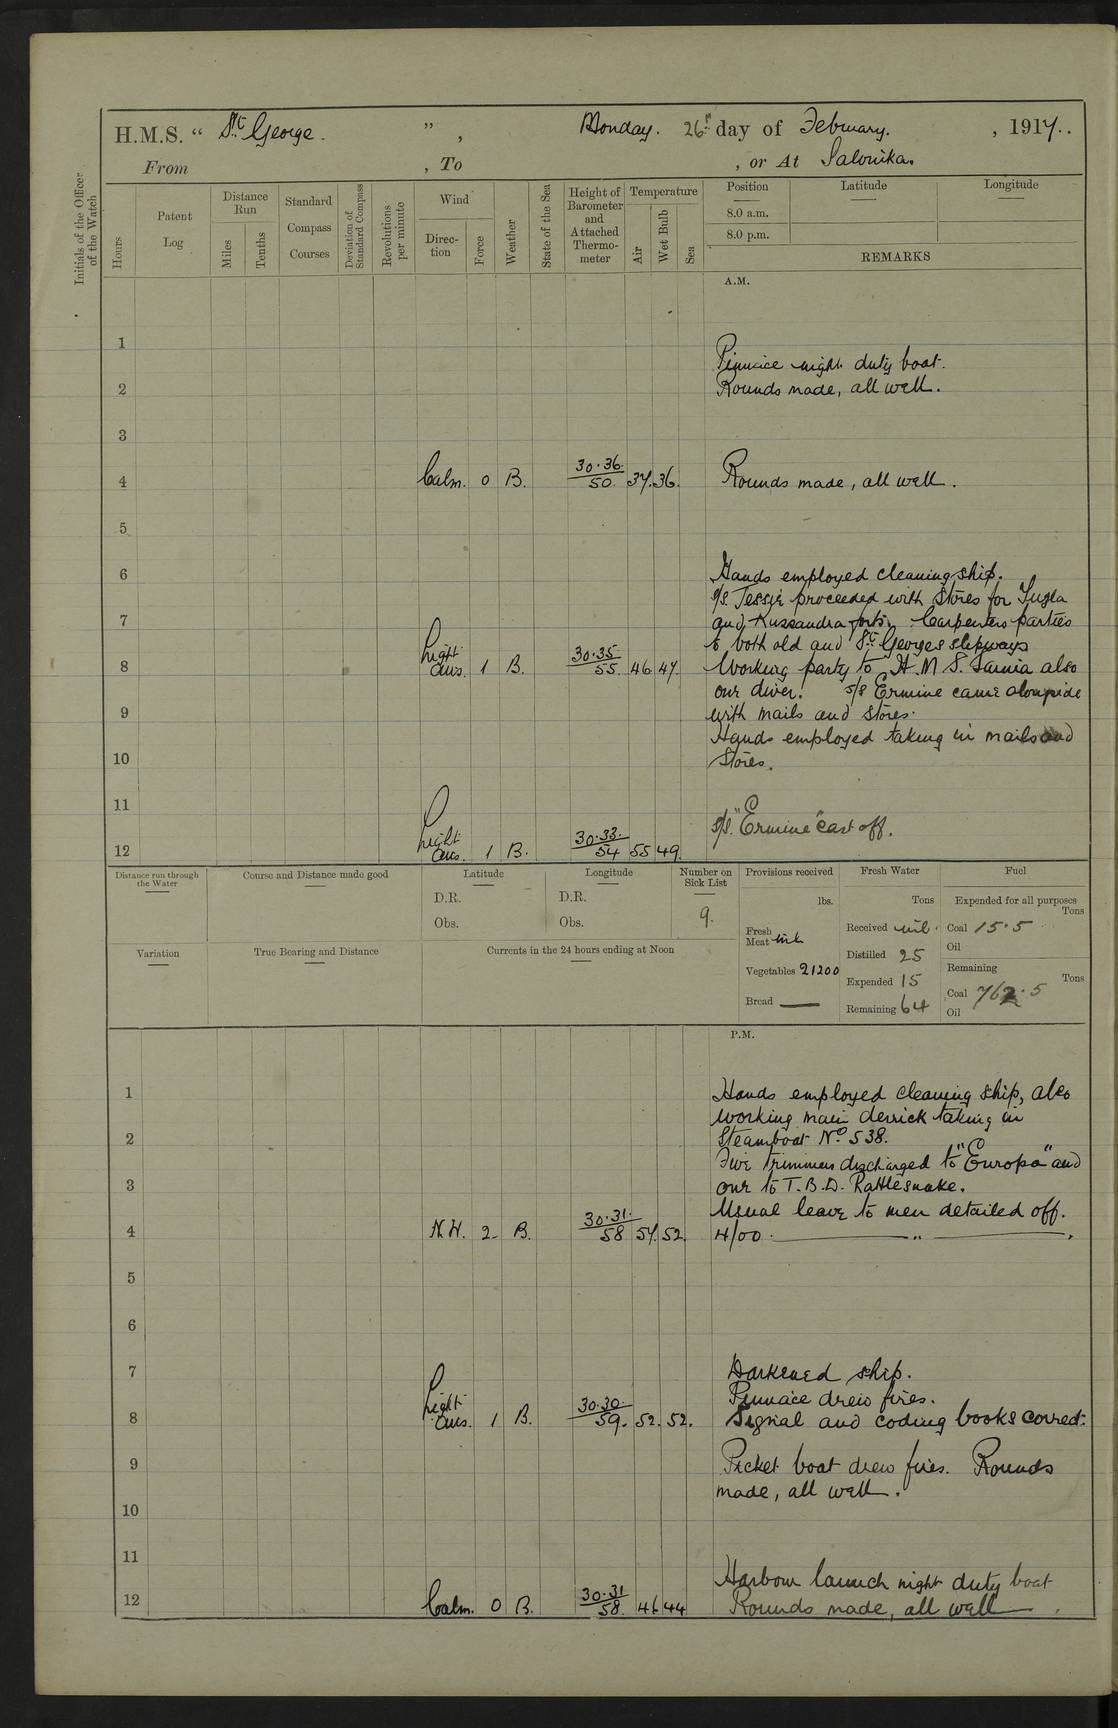 H.M.S. “ St George. ” , Monday. 26th day of February. , 1917.
From , To , or At Salonika.
Initials of the Officer of the Watch
Hours
Patent Log
Distance Run
Miles
Tenths
Standard Compass Courses
Deviation of Standard Compass
Revolutions per minute
Wind
Direc-tion
Force
Weather
State of the Sea
Height of Barometer and Attached Thermo-meter
Temperature
Air
Wet Bulb
Sea
Position Latitude Longitude
8.0 a.m.
8.0 p.m.
REMARKS
A.M.
1
Pinnace night duty boat.
2 Rounds made, all well.
3
4 Calm. 0 B. 30.36. 50. 37. 36. Rounds made, all well.
5
6 Hands employed cleaning ship.
S/S. Tessie proceeded with Stores for
7 and Kussandra forts. Carpenters parties
to both old and St Georges slipways
8 Light airs. 1 B. 30.35 55. 46. 47. Working party to H.M.S. Sarnia also
our diver. S/S Ermine came alongside
9 with mails and stores.
Hands employed taking in mails and
10 Stores.
11
S/S. "Ermine" cast off.
12 Light airs. 1 B. 30.33. 54 55 49.
Distance run through the Water
Course and Distance made good
Latitude
D.R.
Obs.
Longitude
D.R.
Obs.
Number on Sick List
9.
Provisions received
lbs.
Fresh Meat nil
Vegetables 21200
Bread —
Fresh Water
Tons
Received nil.
Distilled 25
Expended 15
Remaining 64
Fuel
Expended for all purposes
Tons
Coal 15.5
Oil
Remaining
Tons
Coal 762.5
Oil
Variation
True Bearing and Distance
Currents in the 24 hours ending at Noon
P.M.
1 Hands employed cleaning ship, also
working main derrick taking in
2 Steamboat No. 538.
Five Trimmers discharged to "Europa" and
3 one to T.B.D. Rattlesnake.
Usual leave to men detailed off.
4 N.W. 2. B. 30.31. 58 57. 52. 4/00. — " —
5
6
7 Darkened ship.
Pinnace drew fires.
8 Light airs. 1 B. 30.30. 59. 52. 52. Signal and coding books correct.
9 Picket boat drew fires. Rounds
10 made, all well.
11
Harbour launch night duty boat
12 Calm. 0 B. 30.31 58. 46 44 Rounds made, all well